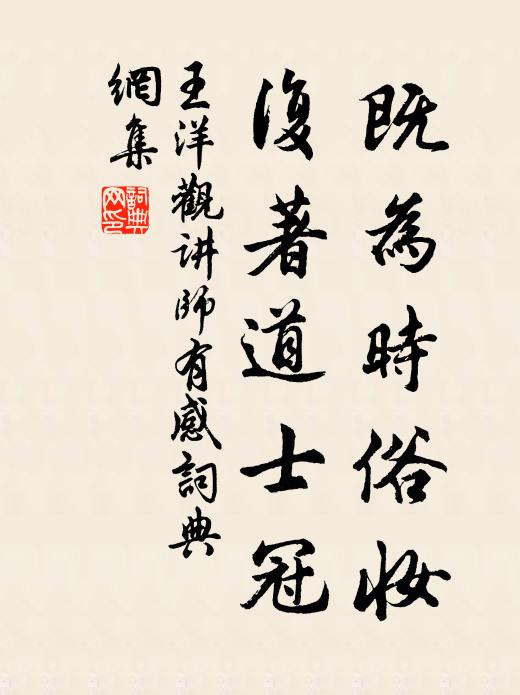 既為時俗妝
復著道士冠
王洋觀講師有感詞典
網集
詞典網印